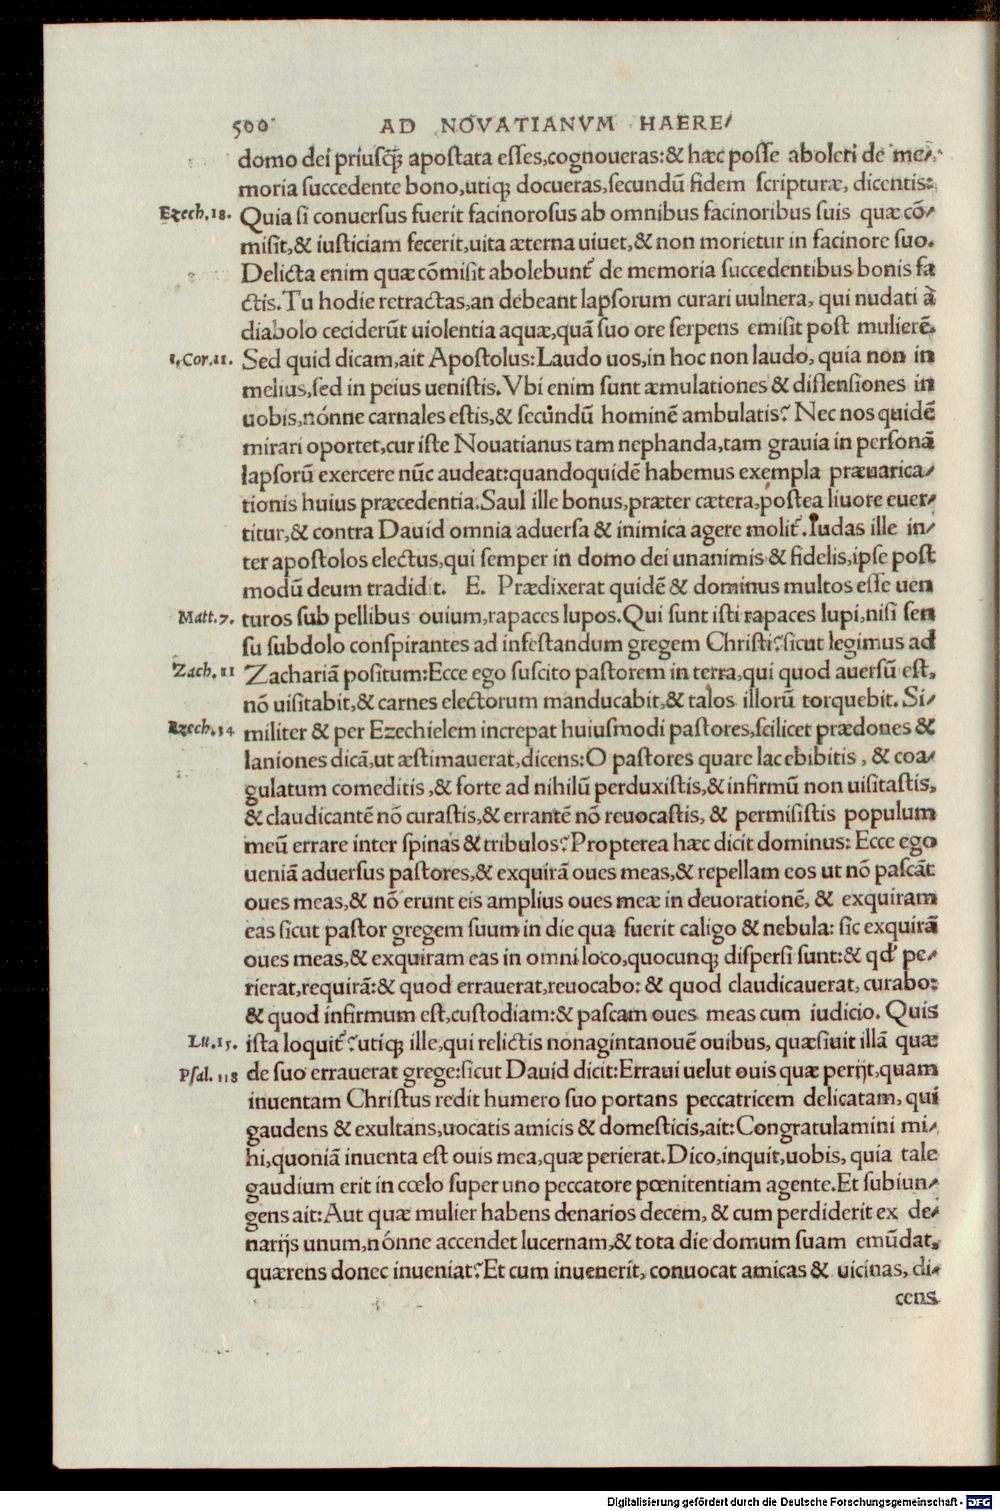 500 AD NOVATIANVM HAERE/
domo dei priusq̃ apostata esses,cognoueras:& hæc posse aboleri de me/
moria succedente bono,utiq; docueras,secundũ fidem scripturæ, dicentis:
Ezech.18. Quia si conuersus fuerit facinorosus ab omnibus facinoribus suis quæ cõ/
misit,& iusticiam fecerit,uita æterna uiuet,& non morietur in facinore suo.
Delicta enim quæ cõmisit abolebunt᷑ de memoria succedentibus bonis fa
ctis.Tu hodie retractas,an debeant lapsorum curari uulnera, qui nudati à
diabolo ceciderũt uiolentia aquæ,quã suo ore serpens emisit post mulierẽ.
1.Cor.11. Sed quid dicam,ait Apostolus:Laudo uos,in hoc non laudo, quia non in
melius,sed in peius uenistis.Vbi enim sunt æmulationes & dissensiones in
uobis,nónne carnales estis,& secũndũ hominẽ ambulatis? Nec nos quidẽ
mirari oportet,cur iste Nouatianus tam nephanda,tam grauia in personã
lapsorũ exercere nũc audeat:quandoquidẽ habemus exempla præuarica/
tionis huius præcedentia.Saul ille bonus,præter cætera,postea liuore euer/
titur,& contra Dauid omnia aduersa & inimica agere molit᷑.Iudas ille in/
ter apostolos electus,qui semper in domo dei unanimis & fidelis,ipse post
modũ deum tradidit. E. Prædixerat quidẽ & dominus multos esse uen
Matt.7. turos sub pellibus ouium,rapaces lupos.Qui sunt isti rapaces lupi,nisi sen
su subdolo conspirantes ad infestandum gregem Christi?sicut legimus ad
Zach.11 Zachariã positum:Ecce ego suscito pastorem in terra,qui quod auersũ est,
nõ uisitabit,& carnes electorum manducabit,& talos illorũ torquebit. Si/
Ezech.34 militer & per Ezechielem increpat huiusmodi pastores,scilicet prædones &
laniones dicã,ut æstimauerat,dicens:O pastores quare lac ebibitis , & coa/
gulatum comeditis ,& forte ad nihilũ perduxistis,& infirmũ non uisitastis,
& claudicantẽ nõ curastis,& errantẽ nõ reuocastis, & permisistis populum
meũ errare inter spinas & tribulos?Propterea hæc dicit dominus: Ecce ego
ueniã aduersus pastores,& exquirã oues meas,& repellam eos ut nõ pascãt
oues meas,& nõ erunt eis amplius oues meæ in deuorationẽ, & exquiram
eas sicut pastor gregem suum in die qua fuerit caligo & nebula: sic exquirã
oues meas,& exquiram eas in omni loco,quocunq; dispersi sunt:& qđ pe/
rierat,requirã:& quod errauerat,reuocabo: & quod claudicauerat, curabo:
& quod infirmum est,custodiam:& pascam oues meas cum iudicio. Quis
Lu.15. ista loquit᷑?utiq; ille,qui relictis nonagintanouẽ ouibus, quæsiuit illã quæ
Psal.118 de suo errauerat grege:sicut Dauid dicit:Erraui uelut ouis quæ perijt,quam
inuentam Christus redit humero suo portans peccatricem delicatam, qui
gaudens & exultans,uocatis amicis & domesticis,ait:Congratulamini mi/
hi,quoniã inuenta est ouis mea,quæ perierat.Dico,inquit,uobis, quia tale
gaudium erit in cœlo super uno peccatore pœnitentiam agente.Et subiun/
gens ait:Aut quæ mulier habens denarios decem, & cum perdiderit ex de/
narijs unum,nónne accendet lucernam,& tota die domum suam emũdat,
quærens donec inueniat?Et cum inuenerit, conuocat amicas & uicinas, di/
cens
Digitalisierung gefördert durch die Deutsche Forschungsgemeinschaft - DFG